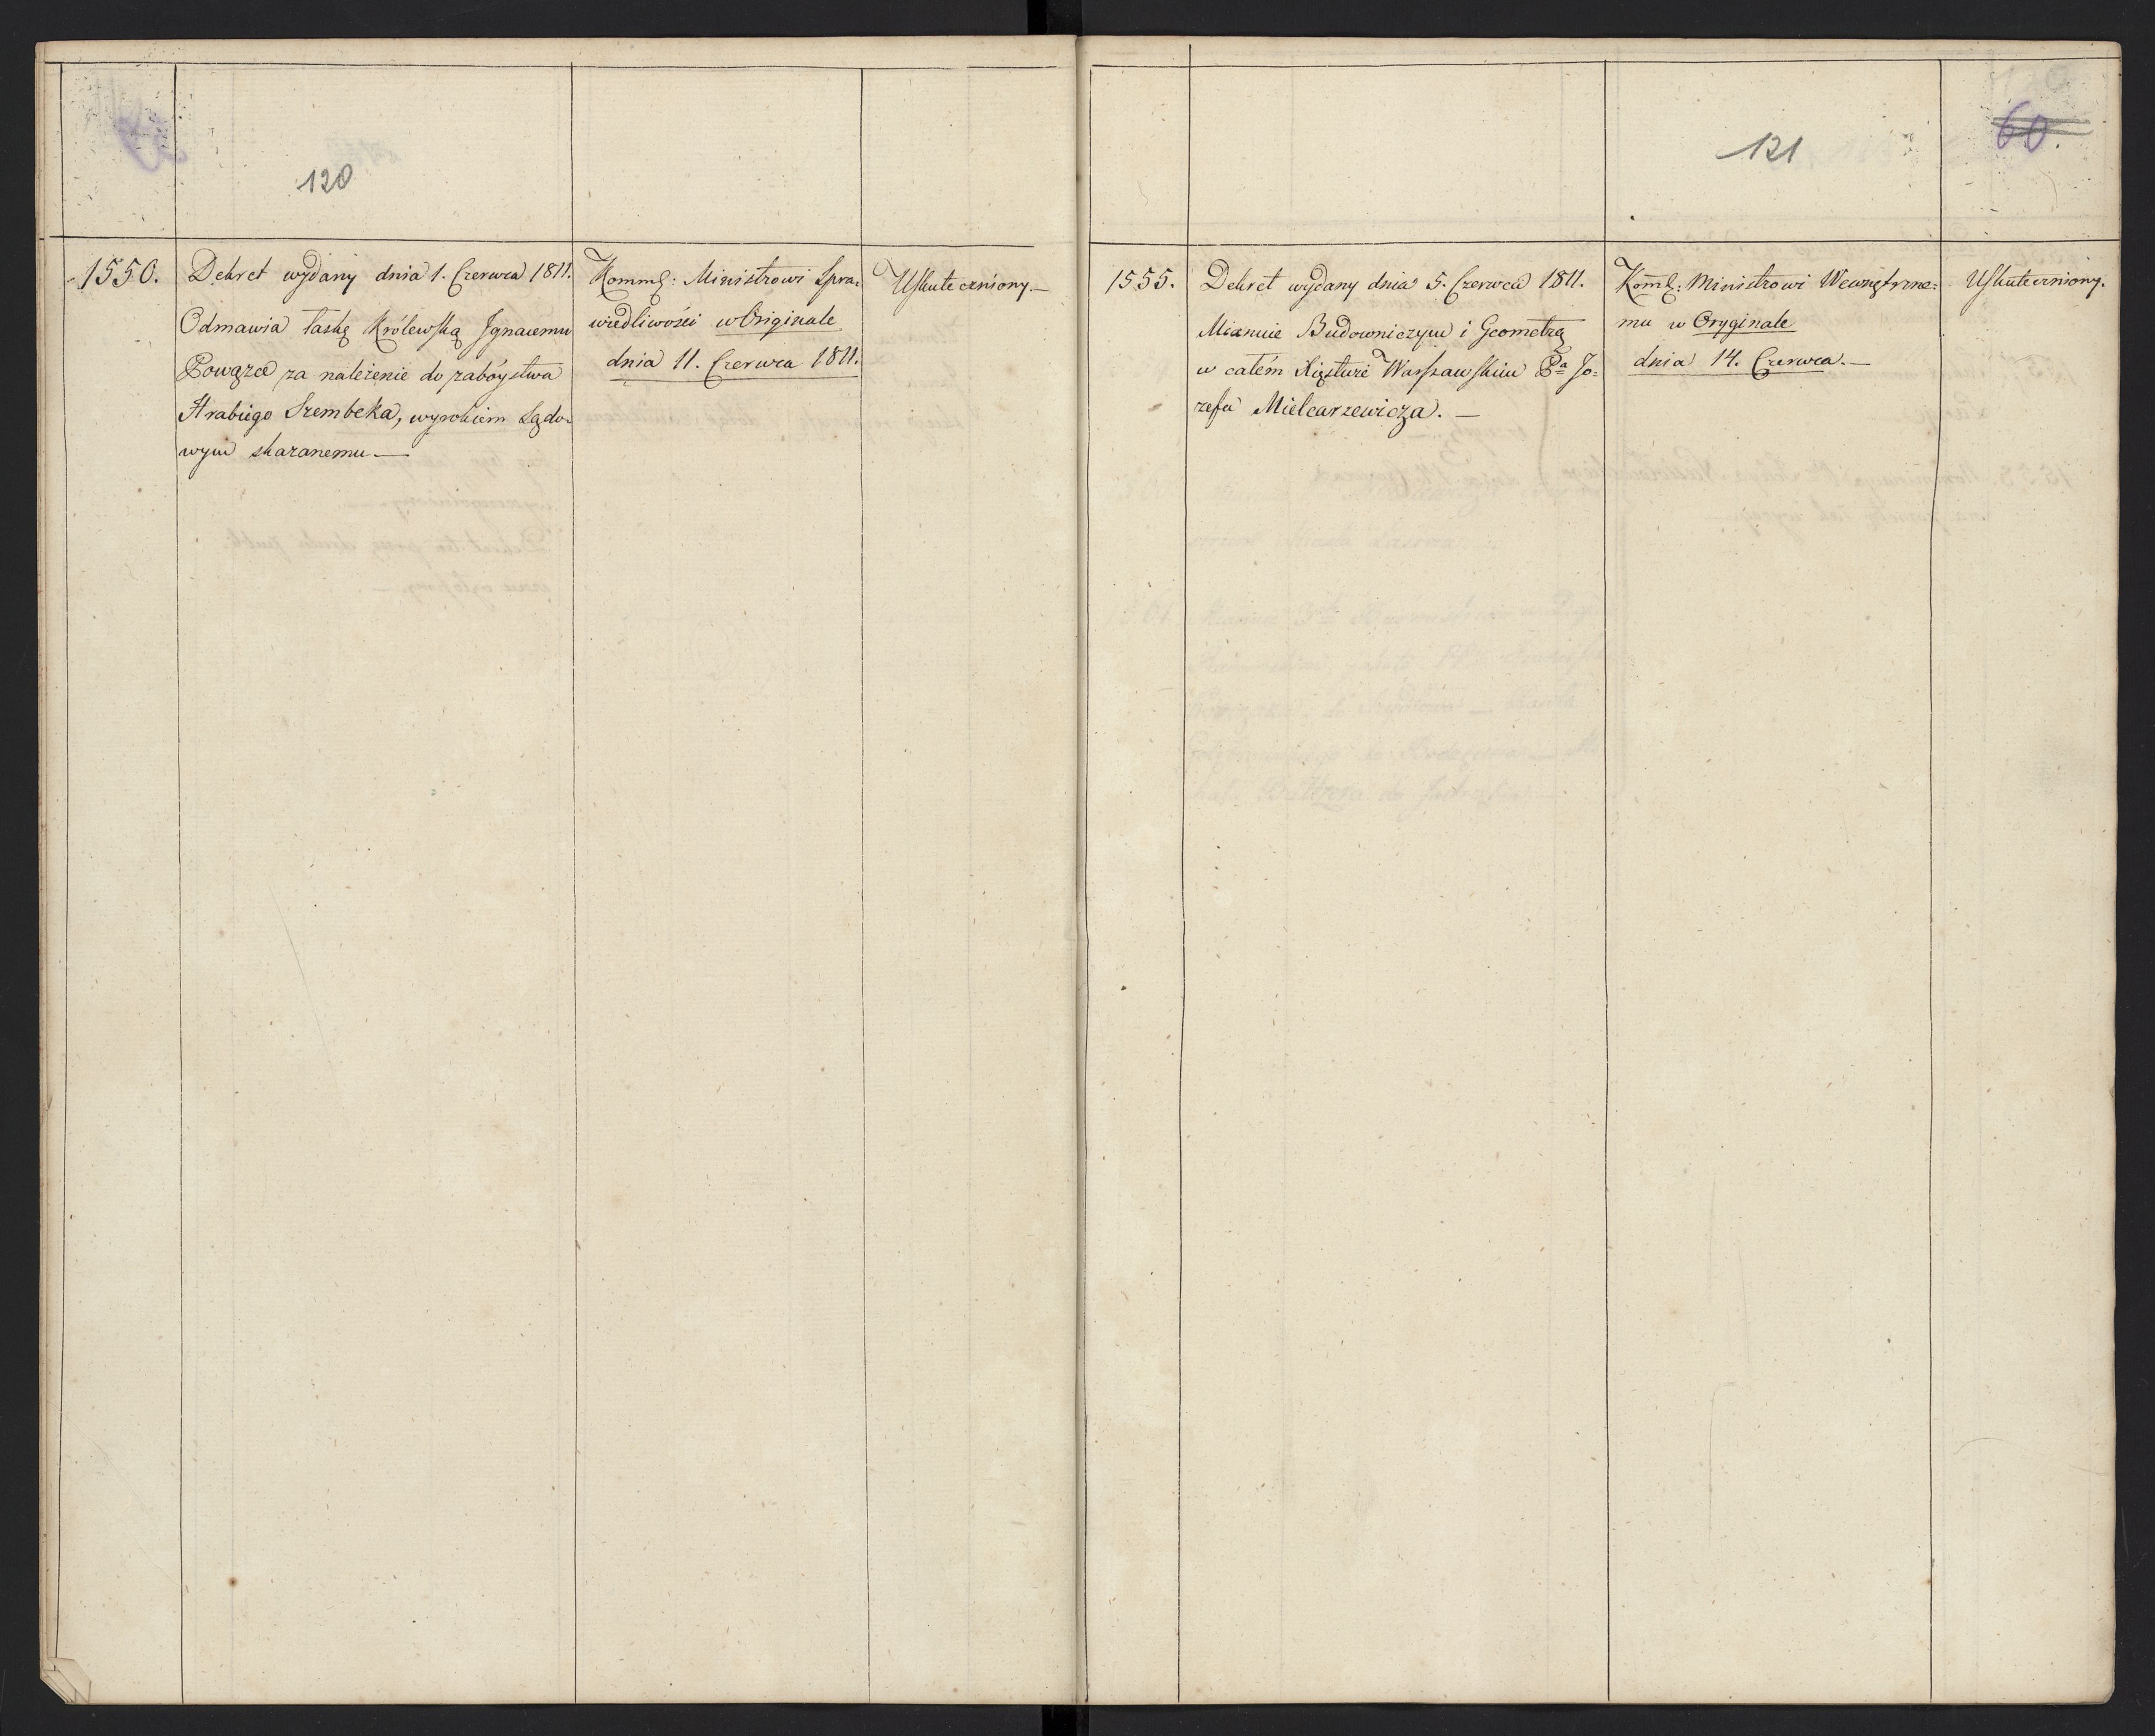 120
1550.
Dekret wydany dnia 1. Czerwca 1811.
Odmawia łaskę Królewską Jgnacemu
Powązce za należenie do zabóystwa
Hrabiego Szembeka, wyrokiem Sądo-
wym skazanemu.—
Kommk: Ministrowi Spra-
wiedliwości w Originale
dnia 11. Czerwca 1811.
Uskuteczniony.—
121
60.
1555.
Dekret wydany dnia 5. Czerwca 1811.
Mianuie Budowniczym i Geometrą
w całém Xięstwie Warszawskim Pa Jo=
zefa Mielcarzewicza.—
Komk: Ministrowi Wewnętrzne=
mu w Oryginale
dnia 14. Czerwca.—
Uskuteczniony.